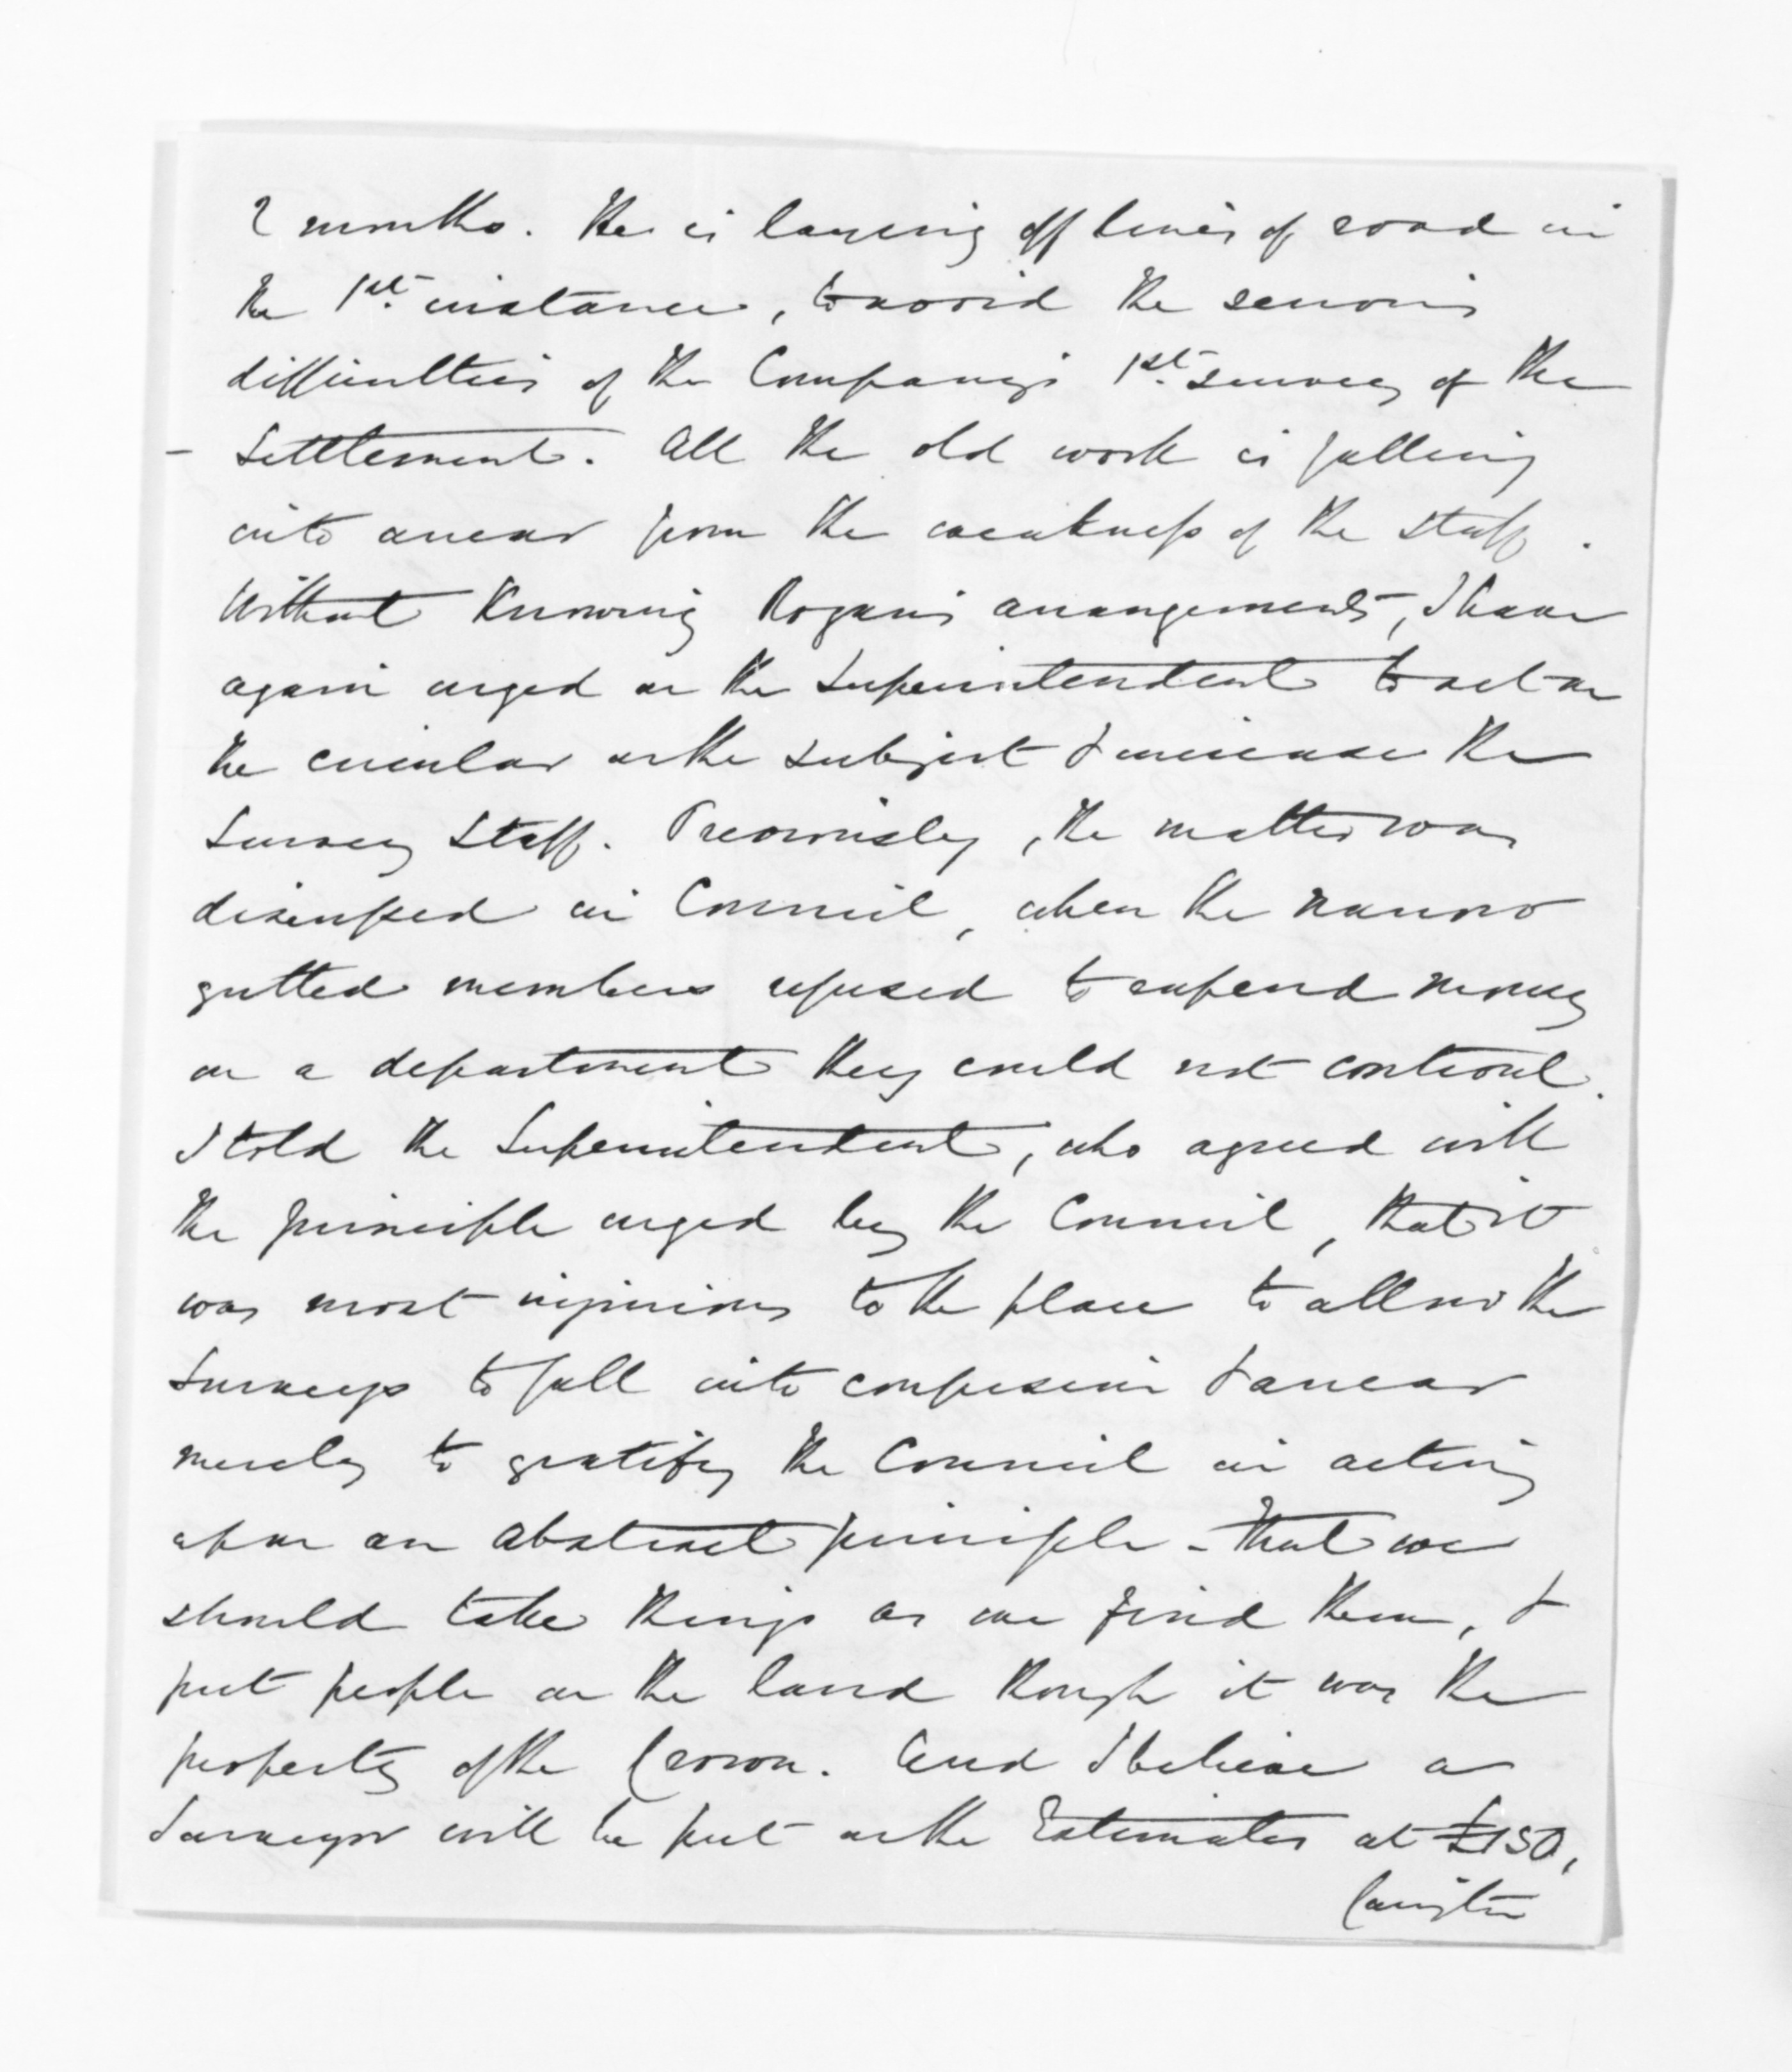 2 months. He is laying off lines of road in
the 1st. instance, to avoid the serious
difficulties of the Company's 1st. survey of the
- Settlement. All the old work is falling
into arrear from the weakness of the staff.
Without knowing Rogan's arrangements, I have
again urged on the Superintendent to act on
the circular on the subject & increase the
Survey Staff. Previously, the matter was
discussed in Council, when the narrow
gutted members refused to expend money
on a department they could not control.
I told the Superintendent, who agreed with
the principle urged by the Council, that it
was most injurious to the place to allow the
Surveys to fall into confusion & arrear
merely to gratify the Council in acting
upon an abstract principle - that we
should take things as we find them, &
put people on the land though it was the
property of the Crown. And I believe a
Surveyor will be put on the Estimates at £150,
Carington